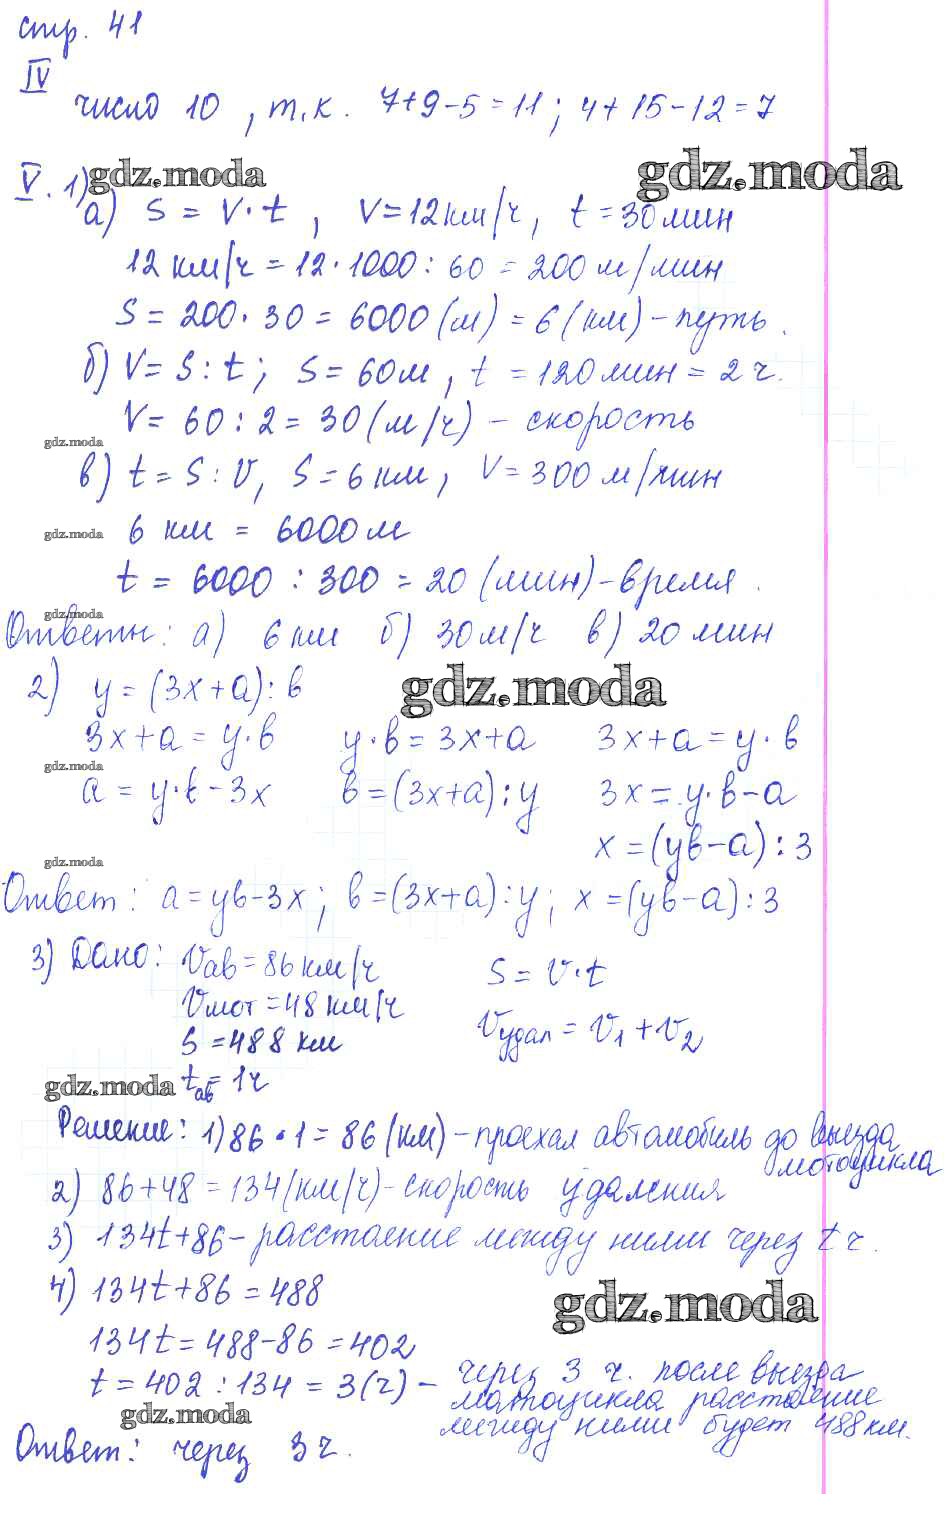 стр. 41
IV
число 10, т.к. 7+9-5=11; 4+15-12=7
V. 1) gdz.moda gdz.moda
а) S = V·t, V=12км/ч, t=30мин
12 км/ч = 12·1000:60 = 200 м/мин
S = 200·30 = 6000(м) = 6(км) - путь.
б) V = S:t; S = 60м, t = 120мин = 2ч.
V = 60:2 = 30(м/ч) - скорость
gdz.moda
в) t = S:V, S = 6км, V = 300 м/мин
gdz.moda 6 км = 6000м
t = 6000:300 = 20 (мин) - время.
gdz.moda
Ответы: а) 6км б) 30м/ч в) 20мин
2) y = (3x+a):b gdz.moda
3x+a = y·b y·b = 3x+a 3x+a = y·b
gdz.moda
a = y·b-3x b = (3x+a):y 3x = y·b-a
x = (yb-a):3
gdz.moda
Ответ: a = yb-3x; b = (3x+a):y; x = (yb-a):3
3) Дано: Vав = 86км/ч S = V·t
Vмот = 48км/ч Vудал = V1+V2
S = 488 км
gdz.moda tав = 1ч
Решение: 1) 86·1 = 86(км) - проехал автомобиль до выезда
мотоцикла
2) 86+48 = 134(км/ч) - скорость удаления
3) 134t+86 - расстоение между ними через t ч.
4) 134t+86 = 488
gdz.moda
134t = 488-86 = 402
t = 402:134 = 3(ч) - через 3 ч. после выезда
мотоцикла расстоение
gdz.moda
между ними будет 488км.
Ответ: через 3ч.